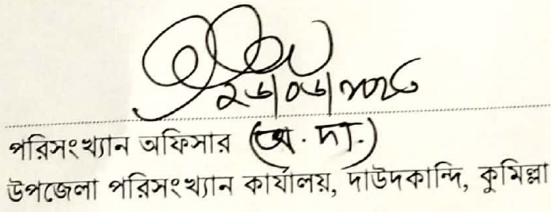 পরিসংখ্যান অফিসার (অ. দা.)
উপজেলা পরিসংখ্যান কার্যালয়, দাউদকান্দি, কুমিল্লা